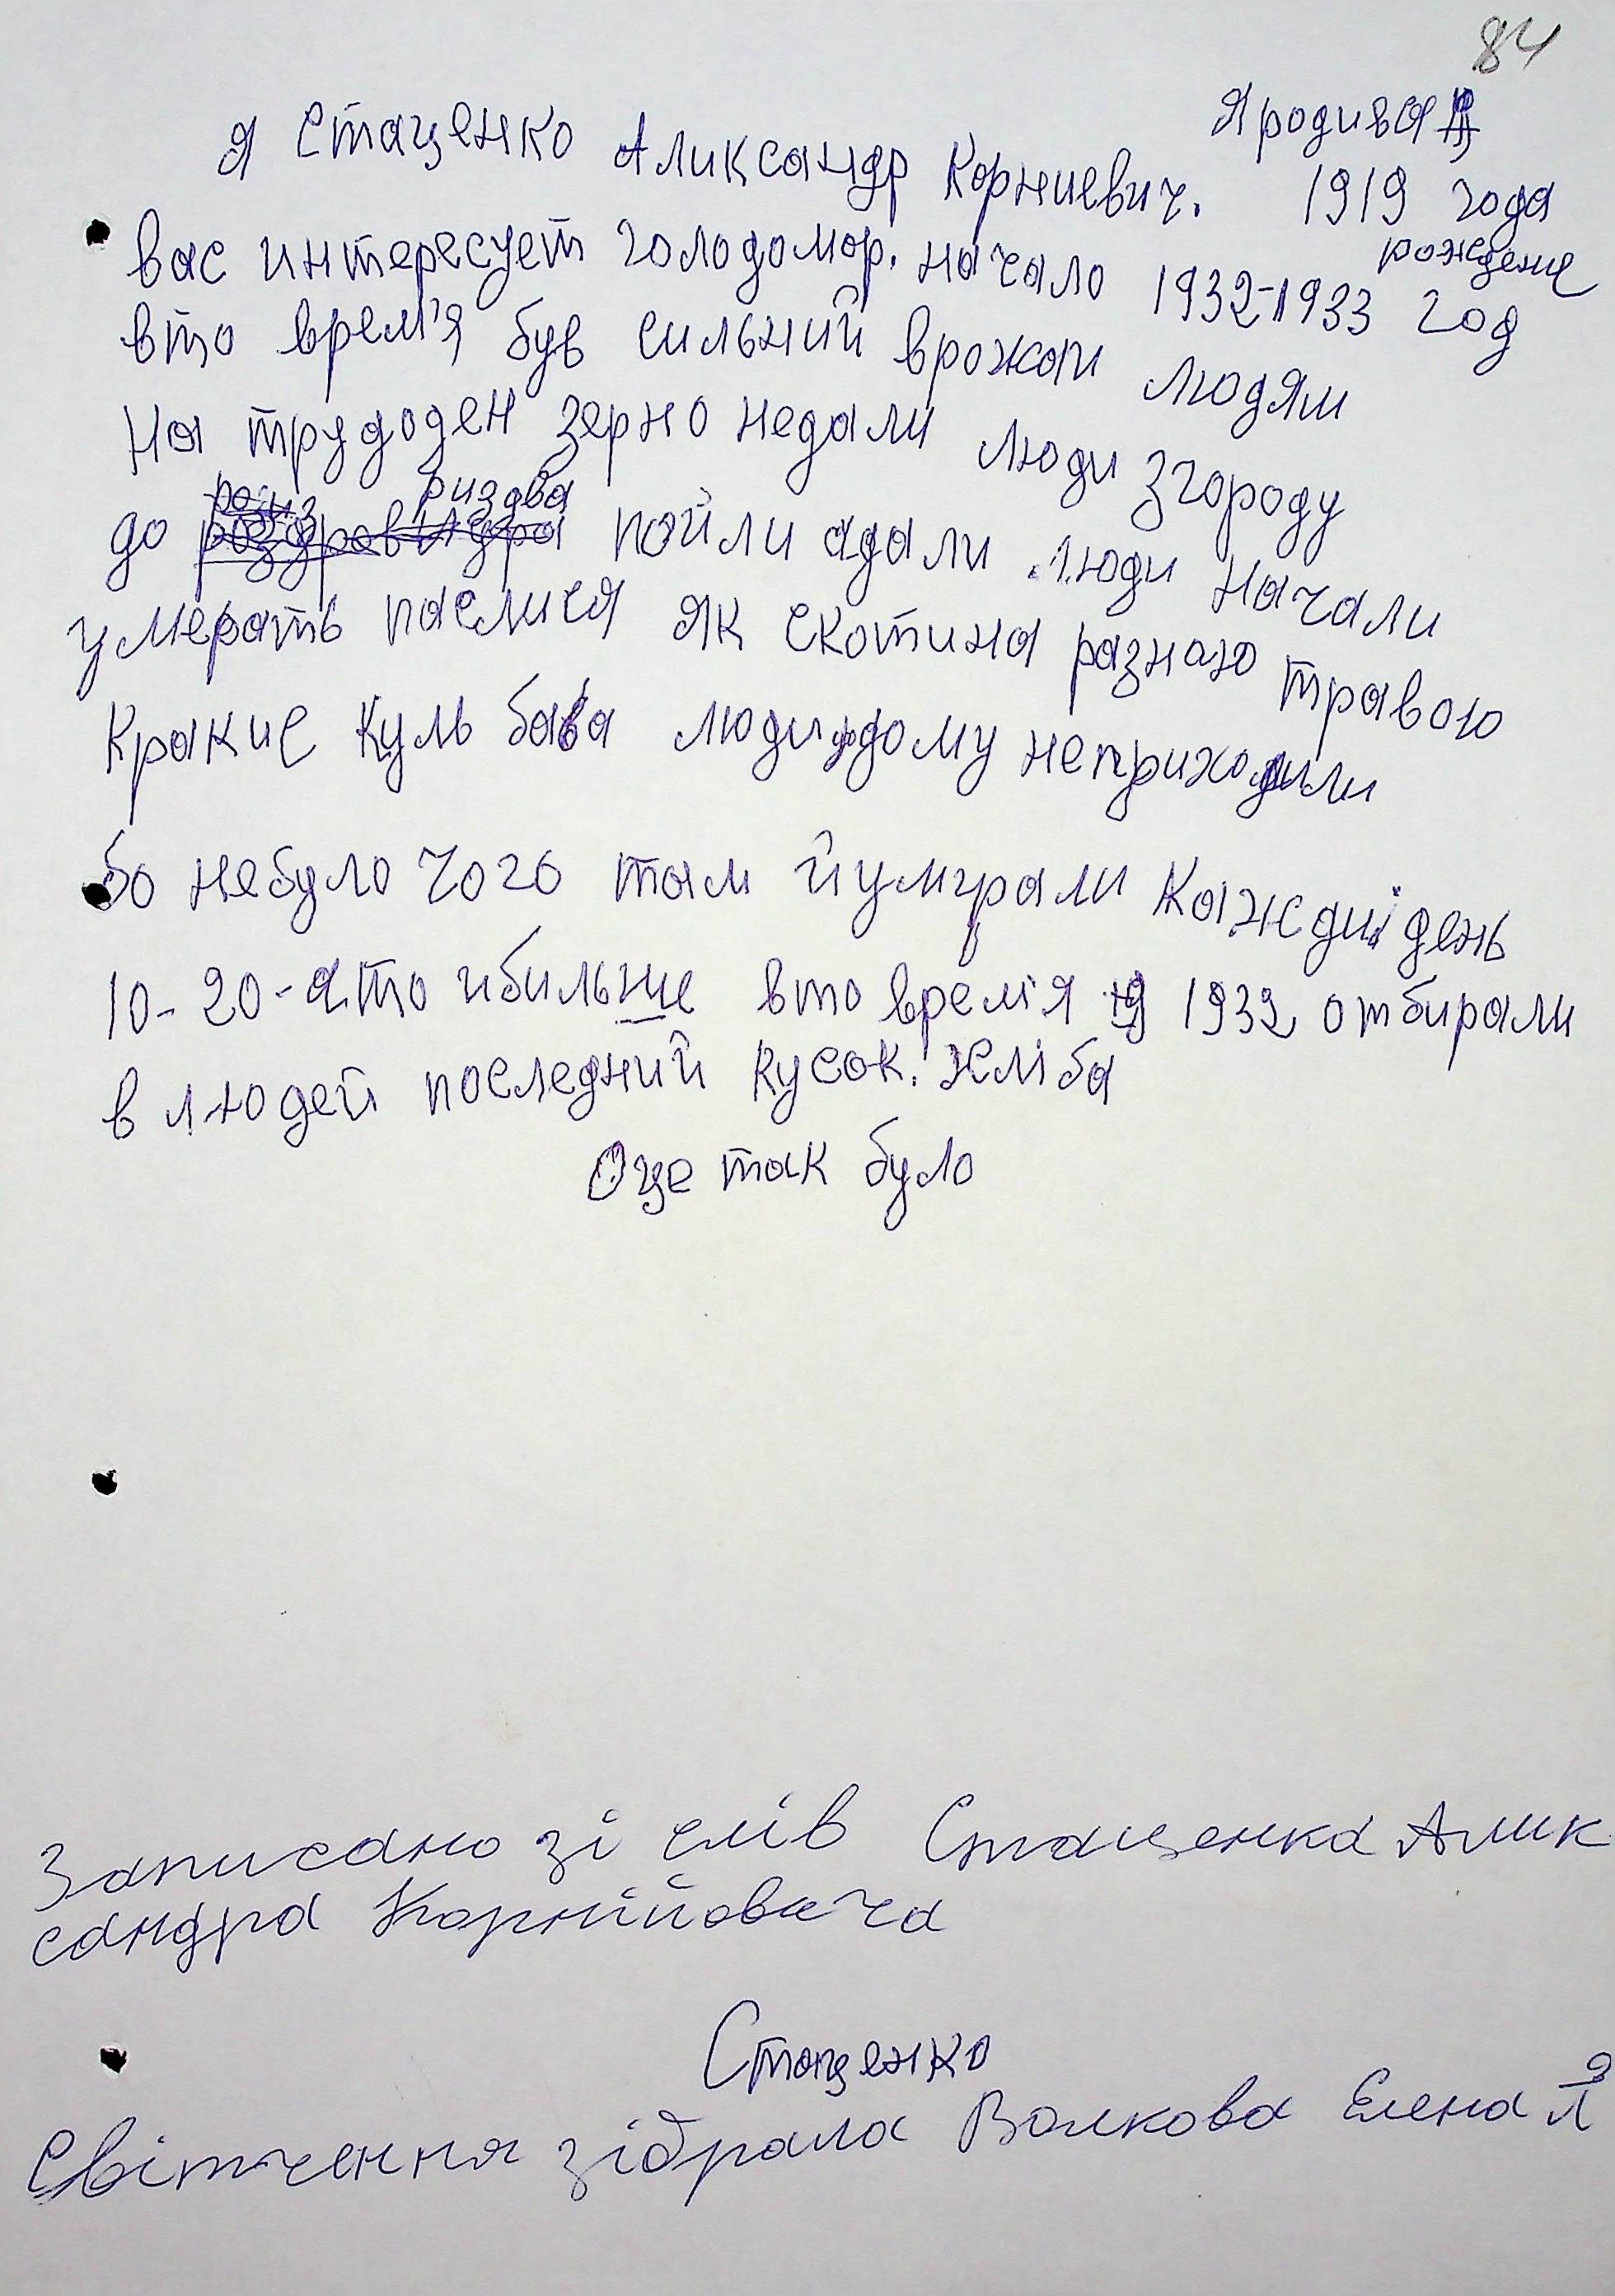 84
Я родивса
Я Стаценко Аликсандр Корниевич. 1919 года
рождение
Вас интересует голодомор. Начало 1932-1933 год
вто врем'я був сильний врожаи людям
На трудоден зерно недали люди згороду
до риздва пойли адали люди начали
умерать паслися як скотина разною травою
Кракие Куль баба люди дому неприходили
бо небуло чого там й умирали Каждий день
10-20-ато ибильше вто врем'я 1932 отбирали
в людей последний кусок. Хліба
Оце так було
Записано зі слів Стаценка Алик
сандра Корнійовича
Стаценко
Світчення зібрала Волкова Елена